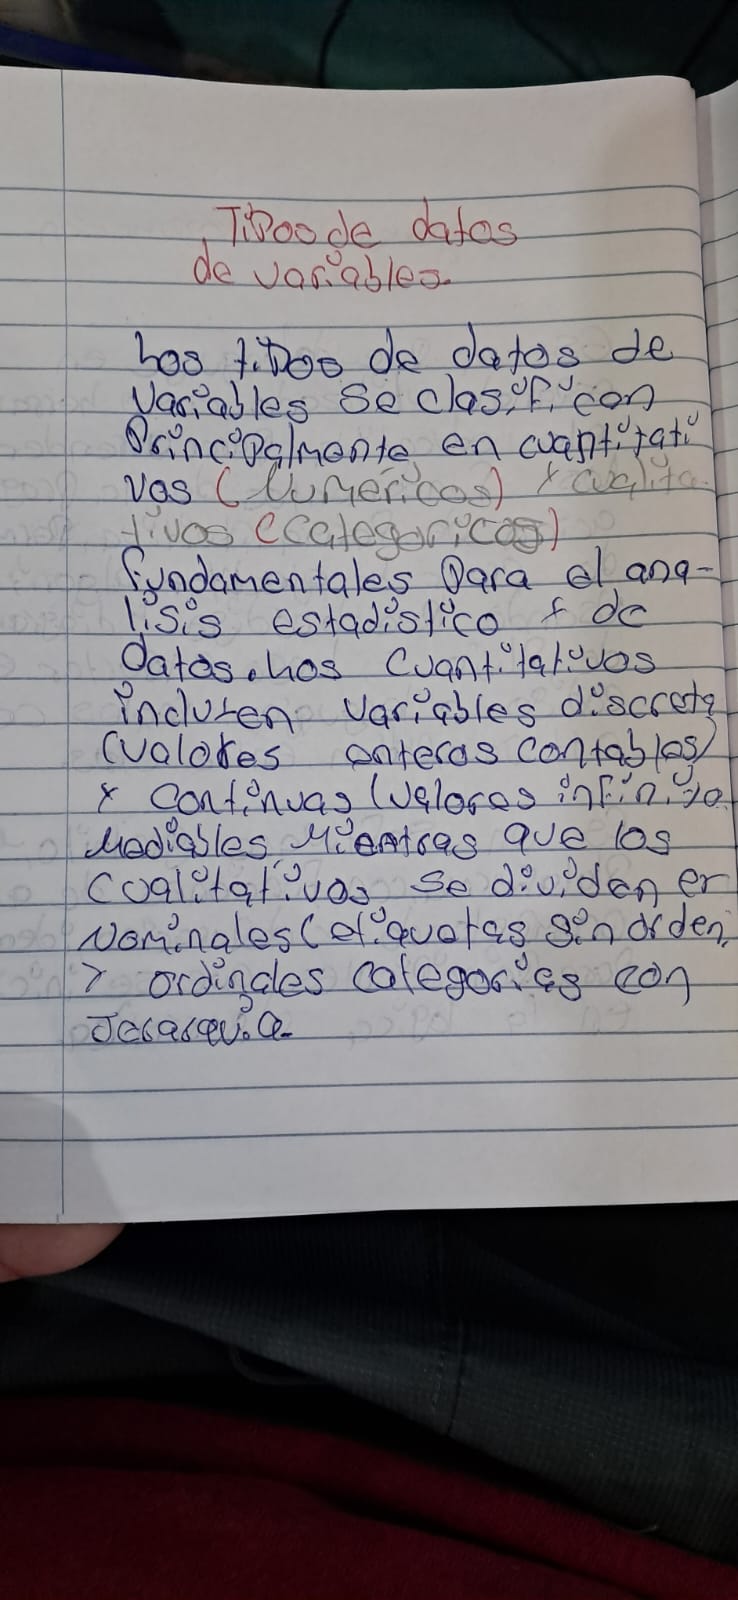 Tipos de datos
de variables.
Los tipos de datos de
variables se clasifican
Principalmente en cuantitati
vos (Numericos) y cualita-
tivos (Categoricos)
fundamentales para el ana-
lisis estadistico y de
datos. Los cuantitativos
incluyen variables discreta
(valores enteros contables)
y continuas (valores infinito
Mediables Mientras que los
coalitativos se dividen en
Nominales (etiquetas sin orden,
y ordinales categorias con
Jerarquia.